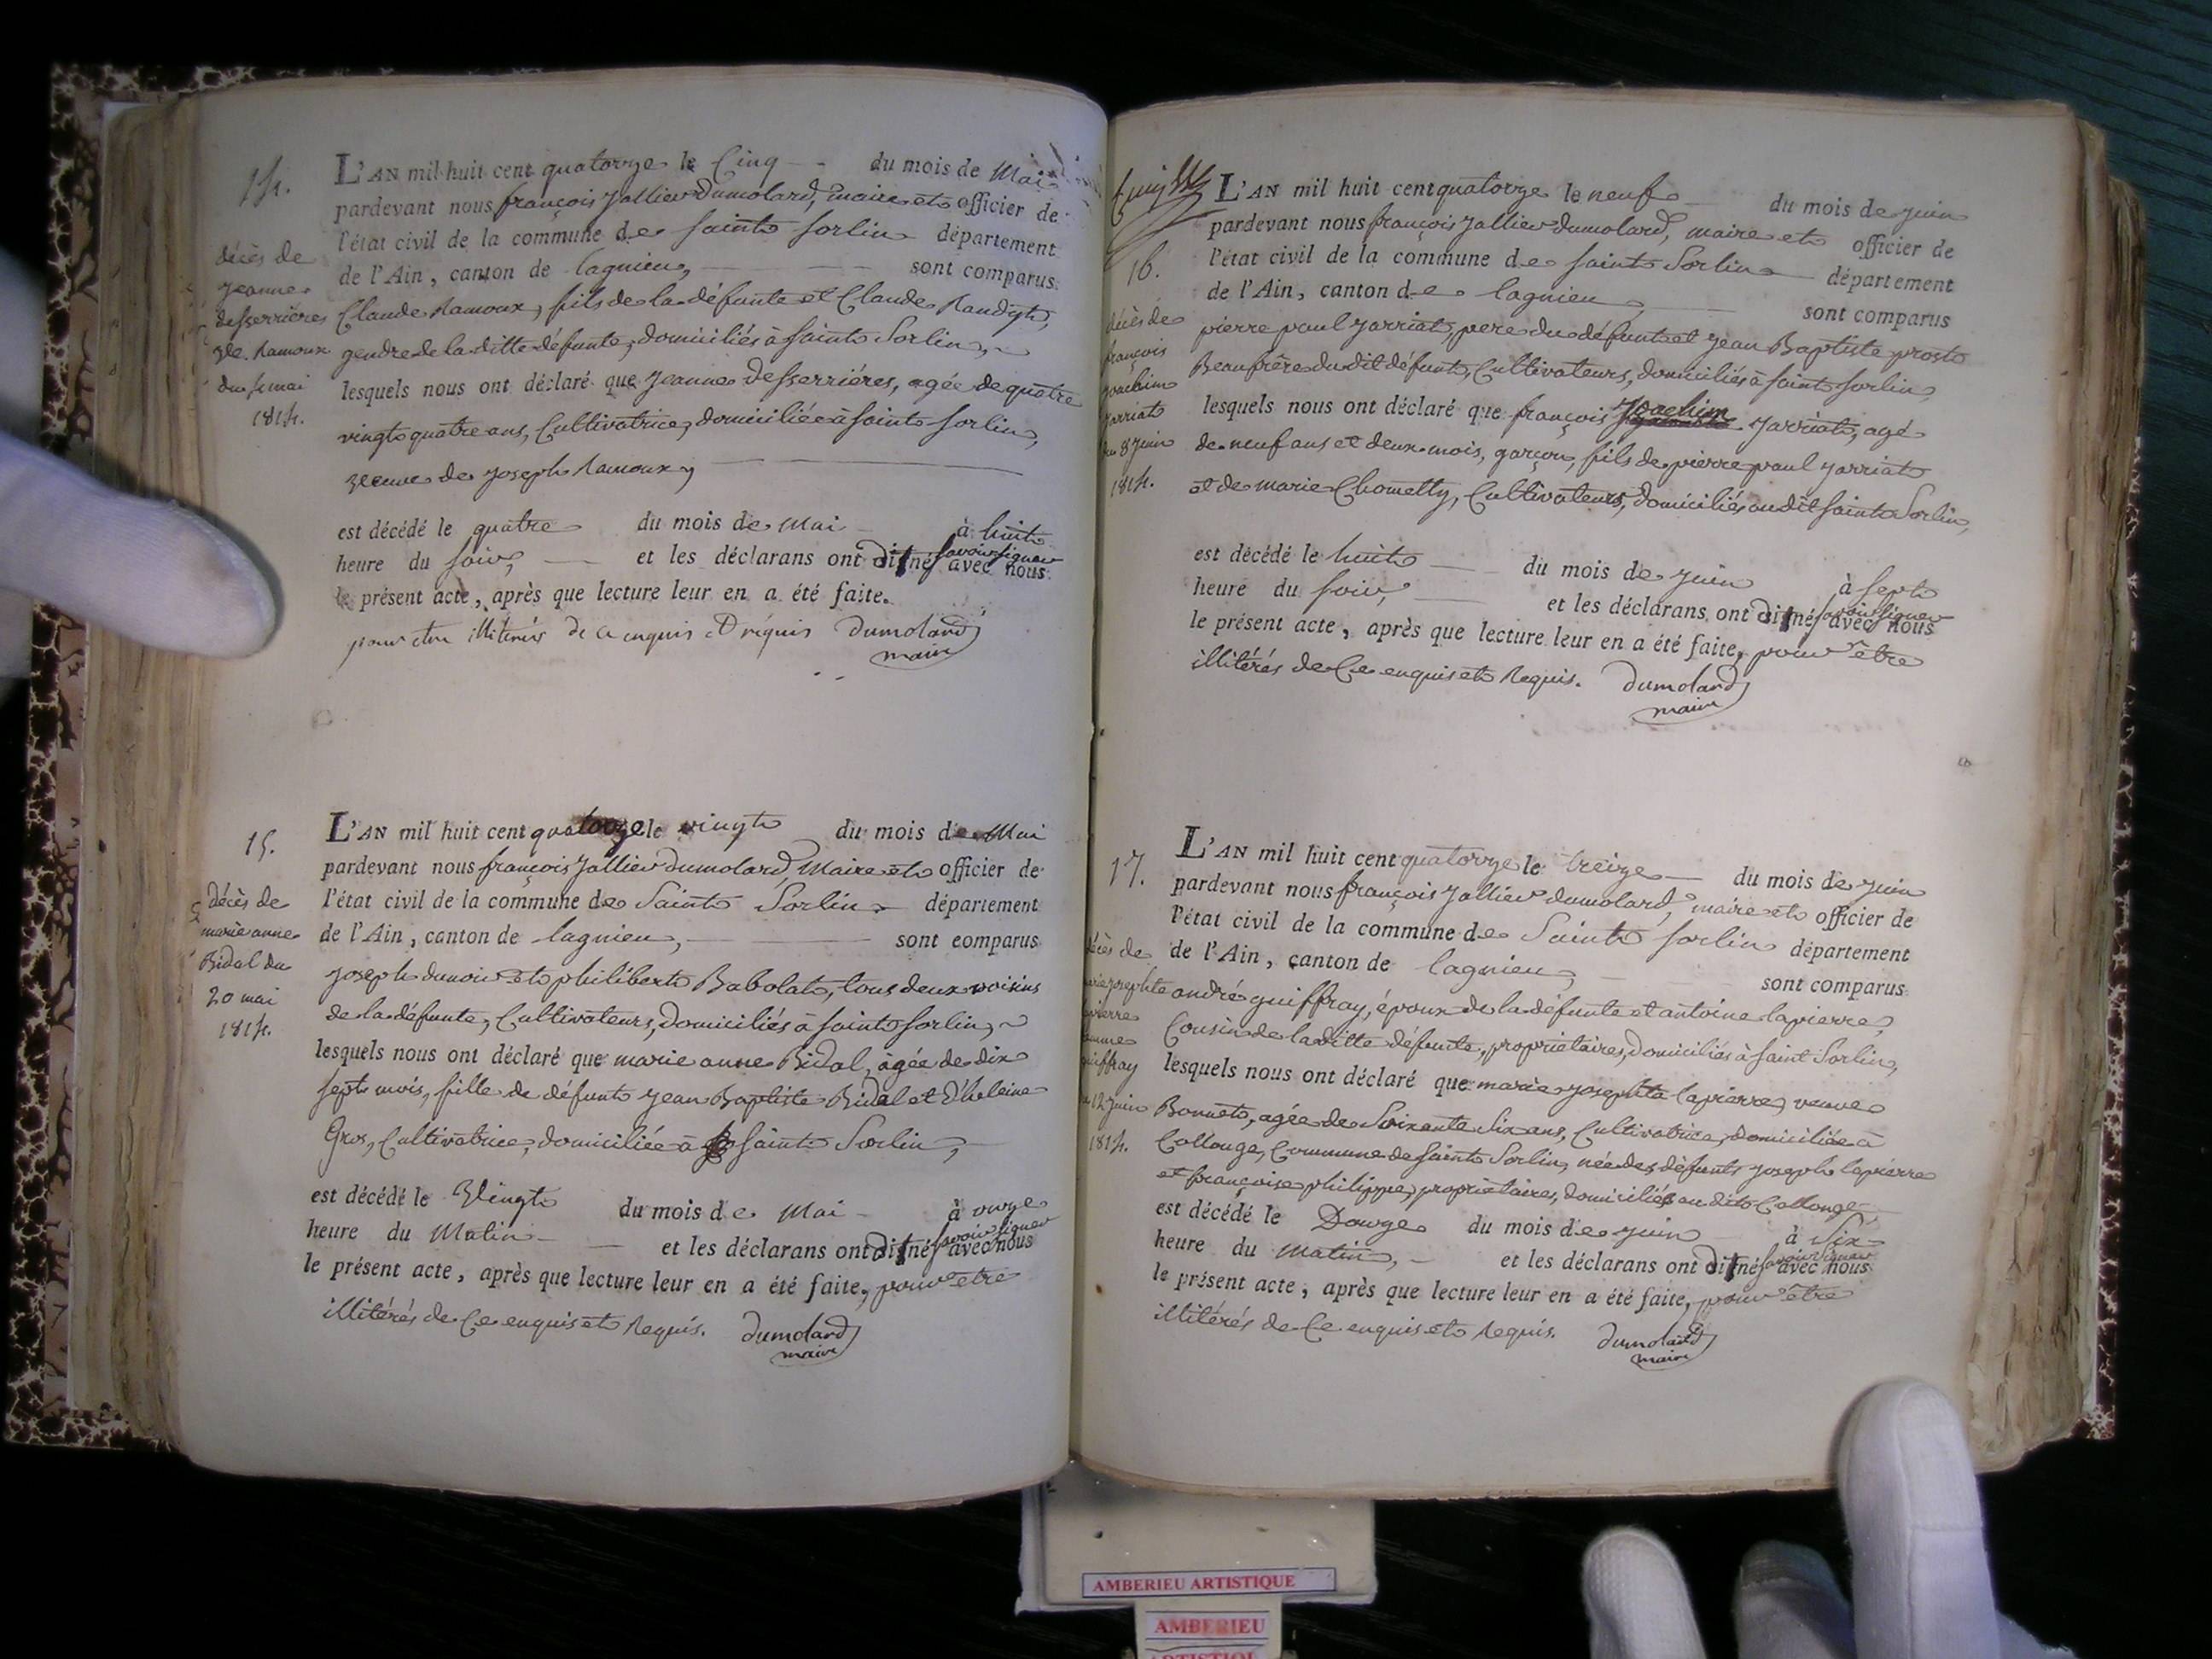 14.
décès de
jeanne
desserriéres
du 4 mai
1814.
L'AN mil huit cent quatorze le Cinq du mois de Mai
pardevant nous françois jallier dumolard, maire et officier de
l'état civil de la commune de saint sorlin département
de l'Ain, canton de lagnieu, sont comparus
Claude Ramoux, fils de la défunte et Claude
gendre de la ditte défunte, domiciliés à saint Sorlin,
lesquels nous ont déclaré que jeanne desserriéres, agée de quatre
vingt quatre ans, Cultivatrice, domiciliée à saint sorlin,
veuve de joseph Ramoux,
est décédé le quatre du mois de Mai à huit
heure du soir, et les déclarans ont dit né savoir signer avec nous
le présent acte, après que lecture leur en a été faite.
pour etre illiterés de ce enquis et réquis dumolard
maire
15.
décès de
marie anne
Bidal du
20 mai
1814.
L'AN mil huit cent quatorze le vingt du mois de Mai
pardevant nous françois jallier dumolard, Maire et officier de
l'état civil de la commune de Saint Sorlin département
de l'Ain, canton de lagnieu, sont comparus
joseph dunoir et philibert Babolat, tous deux voisins
de la défunte, Cultivateurs, domiciliés à saint sorlin,
lesquels nous ont déclaré que marie anne Bidal, agée de dix
sept mois, fille de défunt jean Baptiste Bidal et d'heleine
Gros, Cultivatrice, domiciliée à saint Sorlin,
est décédé le Vingt du mois de Mai à onze
heure du Matin et les déclarans ont dit né savoir signer avec nous
le présent acte, après que lecture leur en a été faite, pour etre
illitérés de Ce enquis et Requis. dumolard
maire
16.
décès de
françois
joachim
jarriat
du 8 juin
1814.
L'AN mil huit cent quatorze le neuf du mois de juin
pardevant nous françois jallier dumolard, maire et officier de
l'état civil de la commune de saint Sorlin département
de l'Ain, canton de lagnieu, sont comparus
pierre paul jarriat, pere du défunt et jean Baptiste prost
Beaufrère du dit défunt, Cultivateurs, domiciliés à saint sorlin,
lesquels nous ont déclaré que françois joachim jarriat, agé
de neuf ans et deux mois, garçon, fils de pierre paul jarriat
et de marie Chometty, Cultivateurs, domiciliés au dit saint Sorlin,
est décédé le huit du mois de juin à sept
heure du soir, et les déclarans ont dit né savoir signer avec nous
le présent acte, après que lecture leur en a été faite, pour être
illitérés de Ce enquis et Requis. dumolard
maire
17.
décès de
marie josephte
lapierre
femme
guiffray
du 12 juin
1814.
L'AN mil huit cent quatorze le treize du mois de juin
pardevant nous françois jallier dumolard, maire et officier de
l'état civil de la commune de Saint sorlin département
de l'Ain, canton de lagnieu, sont comparus
andré guiffray, époux de la défunte et antoine lapierre,
Cousin de la ditte défunte, proprietaires, domiciliés à saint Sorlin,
lesquels nous ont déclaré que marie josephte lapierre, veuve
Bonnet, agée de Soixante Six ans, Cultivatrice, domiciliée à
Collonge, Commune de saint Sorlin, née des défunts joseph lapierre
et françoise philippe, proprietaires, domiciliés au dit Collonge,
est décédé le Douze du mois de juin à Six
heure du matin, et les déclarans ont dit né savoir signer avec nous
le présent acte, après que lecture leur en a été faite, pour être
illitérés de Ce enquis et Requis. dumolard
maire
AMBERIEU ARTISTIQUE
AMBERIEU
ARTISTIQUE